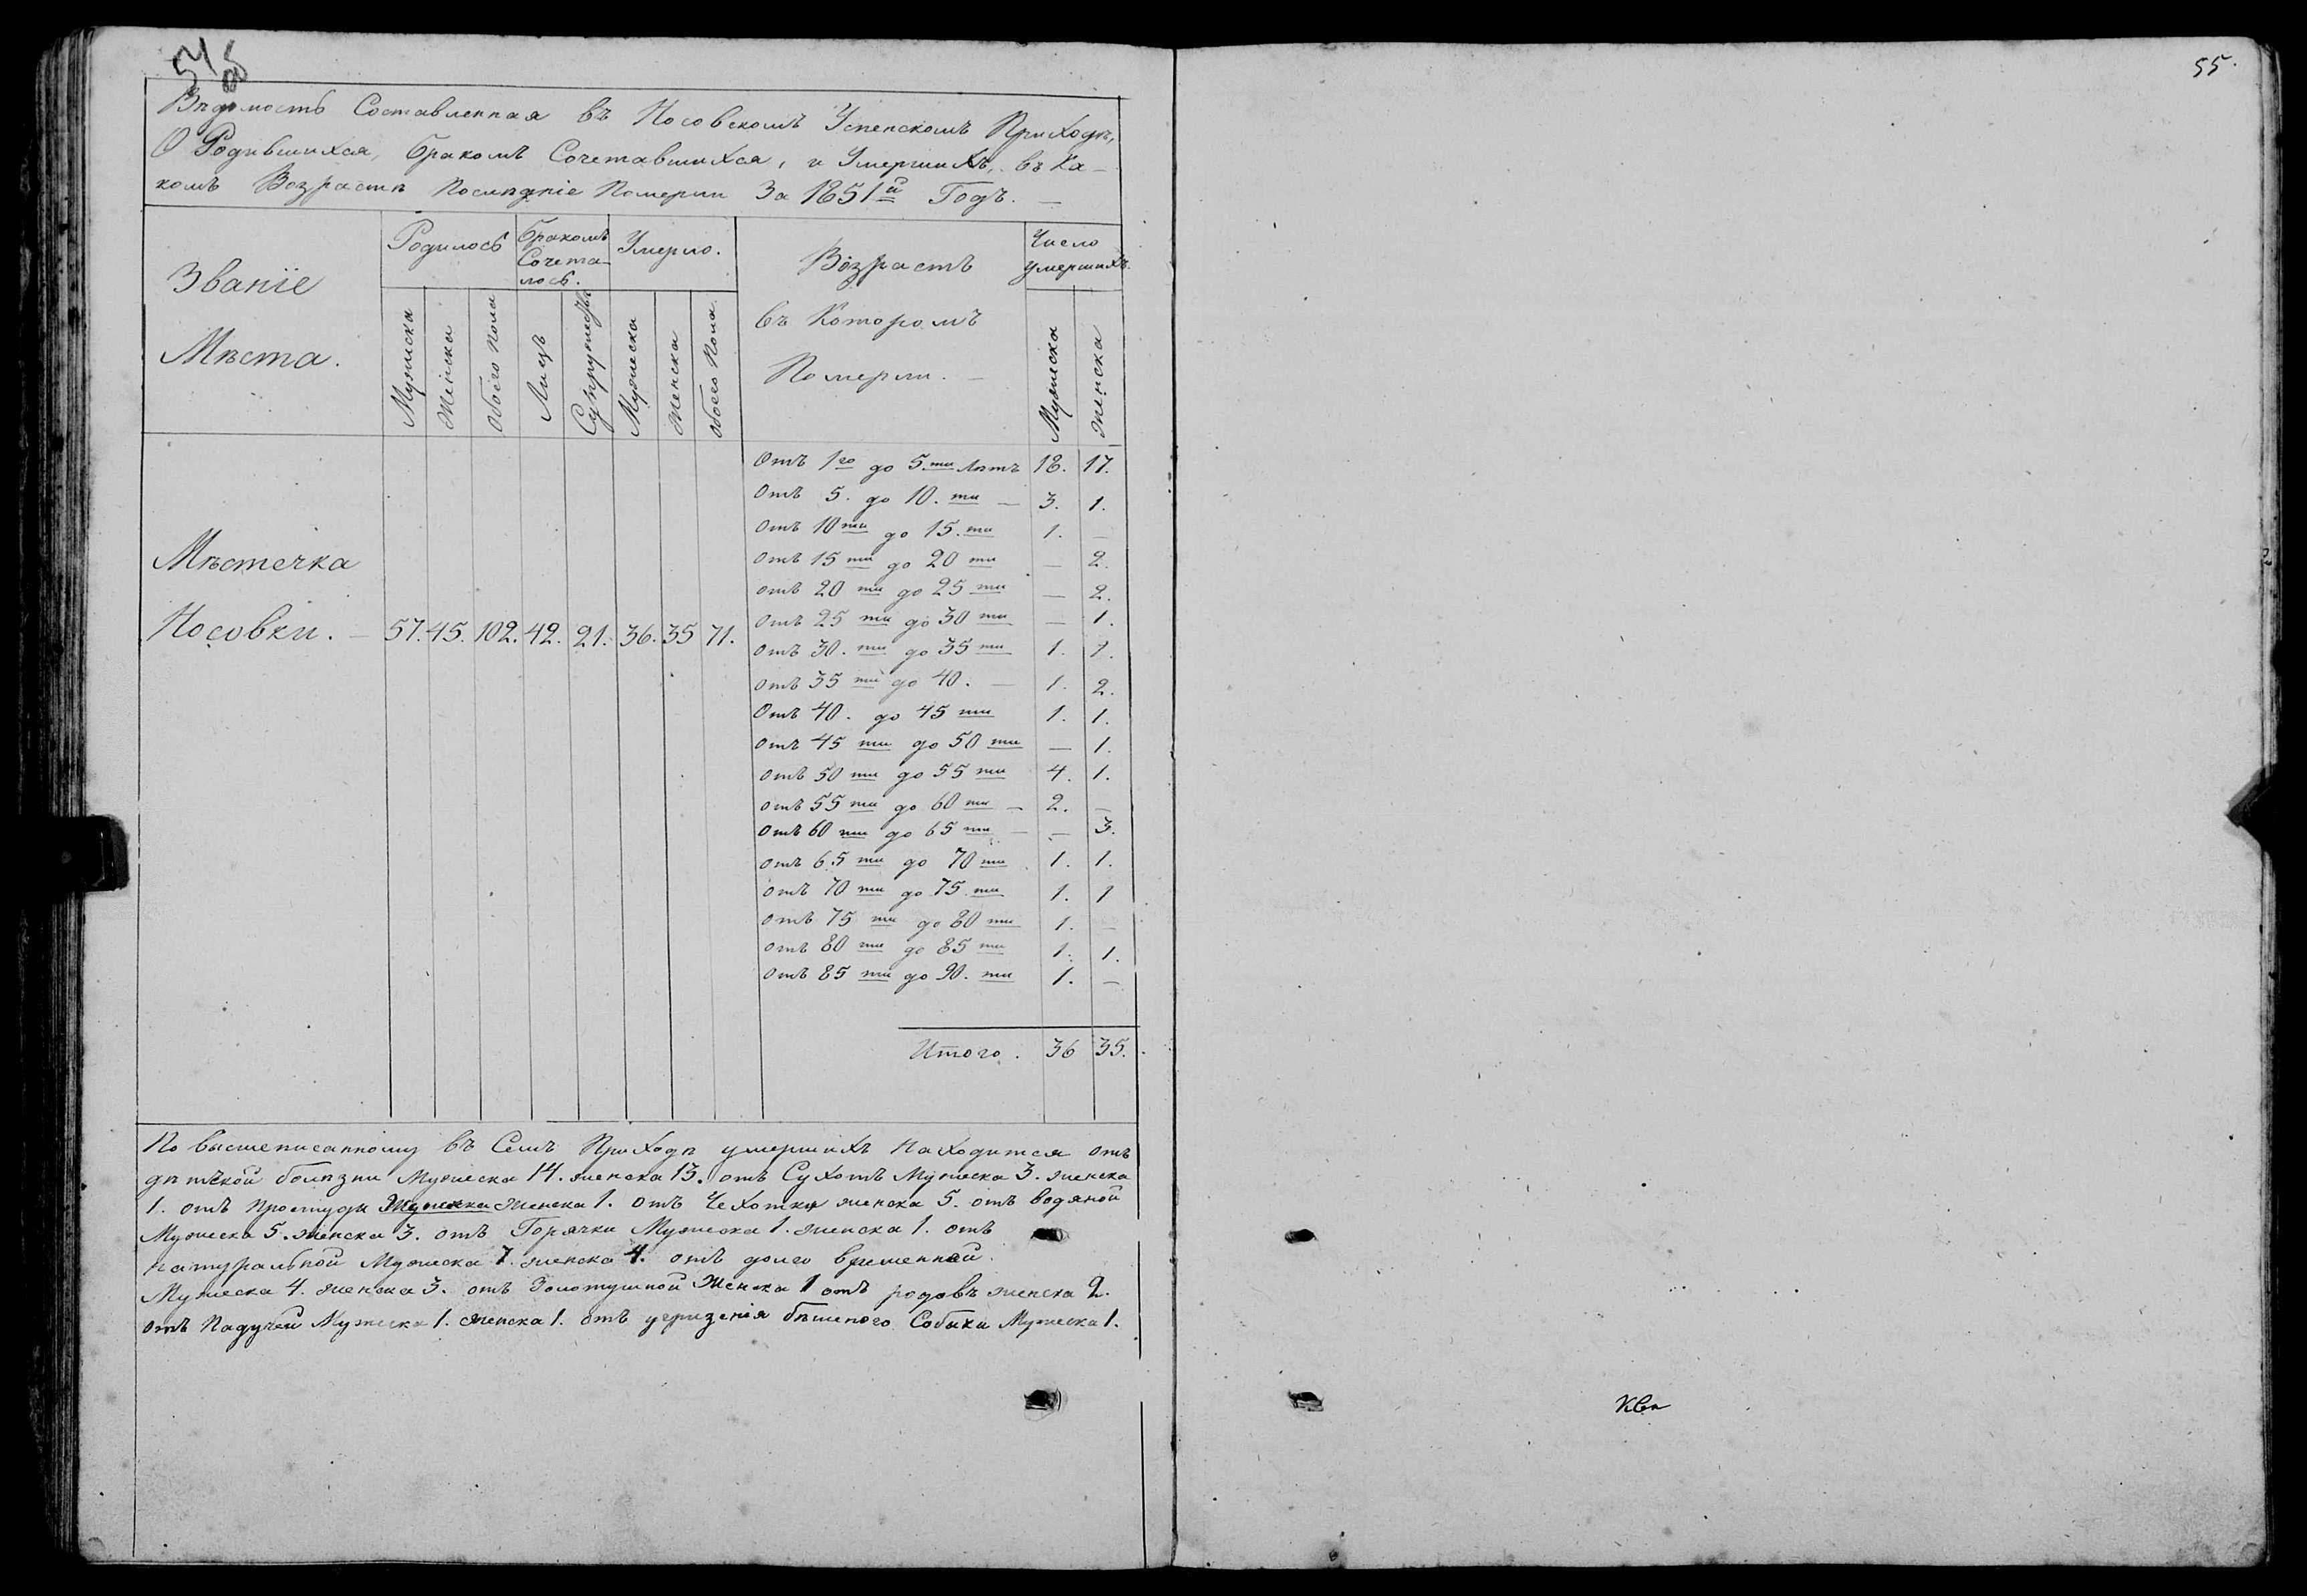 54 об
55.
Вѣдомость Составленная въ Носовскомъ Успенскомъ Приходѣ,
О Родившихся, бракомъ Сочетавшихся, и Умершихъ, въ Ка-
комъ Возрастѣ Послѣдніе Померли За 1851й Годъ. —
Званіе
Мѣста.
Родилось
бракомъ
Сочета-
лось.
Умерло.
Возрастъ
въ Которомъ
Померли. —
Число
умершихъ.
Мужеска
Женска
Обоего Пола
Лицъ
Супружествъ
Мужеска
Женска
обоего Пола
Мужеска
Женска
Мѣстечка
Носовки. — 57. 45. 102. 42. 21. 36. 35 71.
Отъ 1го до 5.ти лѣтъ 18. 17.
Отъ 5. до 10.ти — 3. 1.
Отъ 10ти до 15.ти 1. —
Отъ 15ти до 20ти — 2.
отъ 20ти до 25ти — 2.
Отъ 25ти до 30ти — 1.
отъ 30.ти до 35ти 1. 1.
отъ 35ти до 40. — 1. 2.
Отъ 40. до 45ти 1. 1.
отъ 45ти до 50ти — 1.
отъ 50ти до 55ти 4. 1.
отъ 55ти до 60ти — 2. —
отъ 60ти до 65ти — — 3.
отъ 65ти до 70ти 1. 1.
отъ 70ти до 75ти 1. 1
отъ 75ти до 80ти 1. —
отъ 80ти до 85ти 1. 1.
отъ 85ти до 90.ти 1. —
Итого. 36 35.
По вышеписанному въ Семъ Приходѣ умершихъ Находится отъ
дѣтской болѣзни Мужеска 14. женска 13. отъ Сухотъ Мужеска 3. женска
1. отъ простуды женска 1. отъ Чехотки женска 5. отъ водяной
Мужеска 5. женска 3. отъ Горячки Мужеска 1. женска 1. отъ
натуральной Мужеска 7. женска 4. отъ долговременной
Мужеска 4. женска 3. отъ Золотушной Женска 1 отъ родовъ женска 2.
отъ Падучей Мужеска 1. женска 1. отъ угризенія бѣшеного Собаки Мужеска 1.